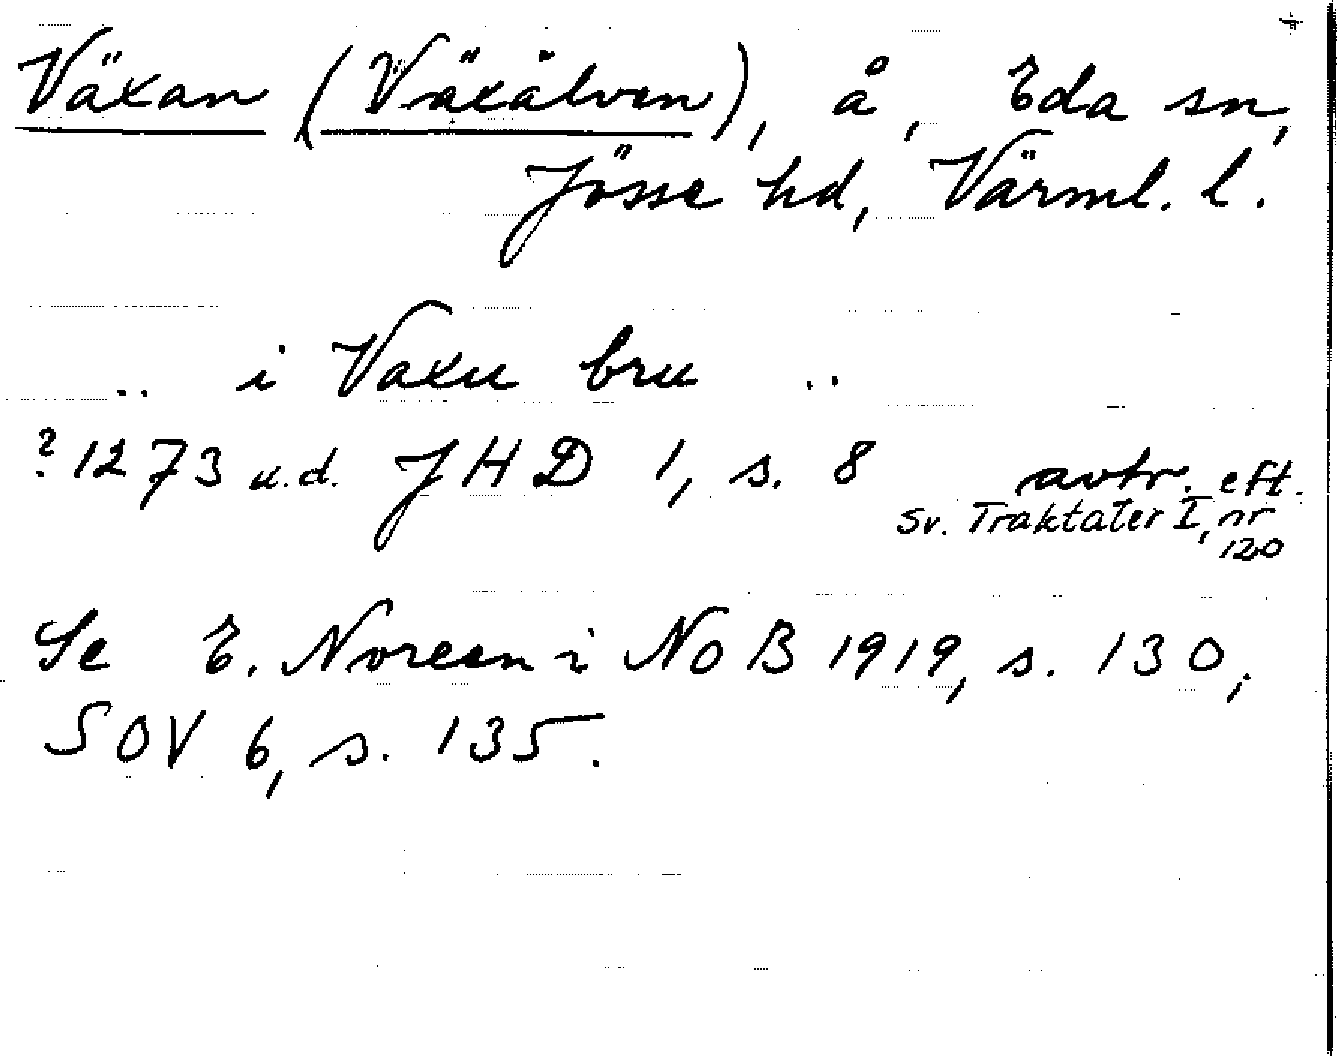 Växan (Växälven), å, Eda sn,
Jösse hd, Värml. l.
.. i Vaxu bru ..
? 1273 u.d. JHD 1, s. 8 avtr. eft.
Sv. Traktater I, nr
120
Se E. Noreen i NoB 1919, s. 130,
SOV 6, s. 135.